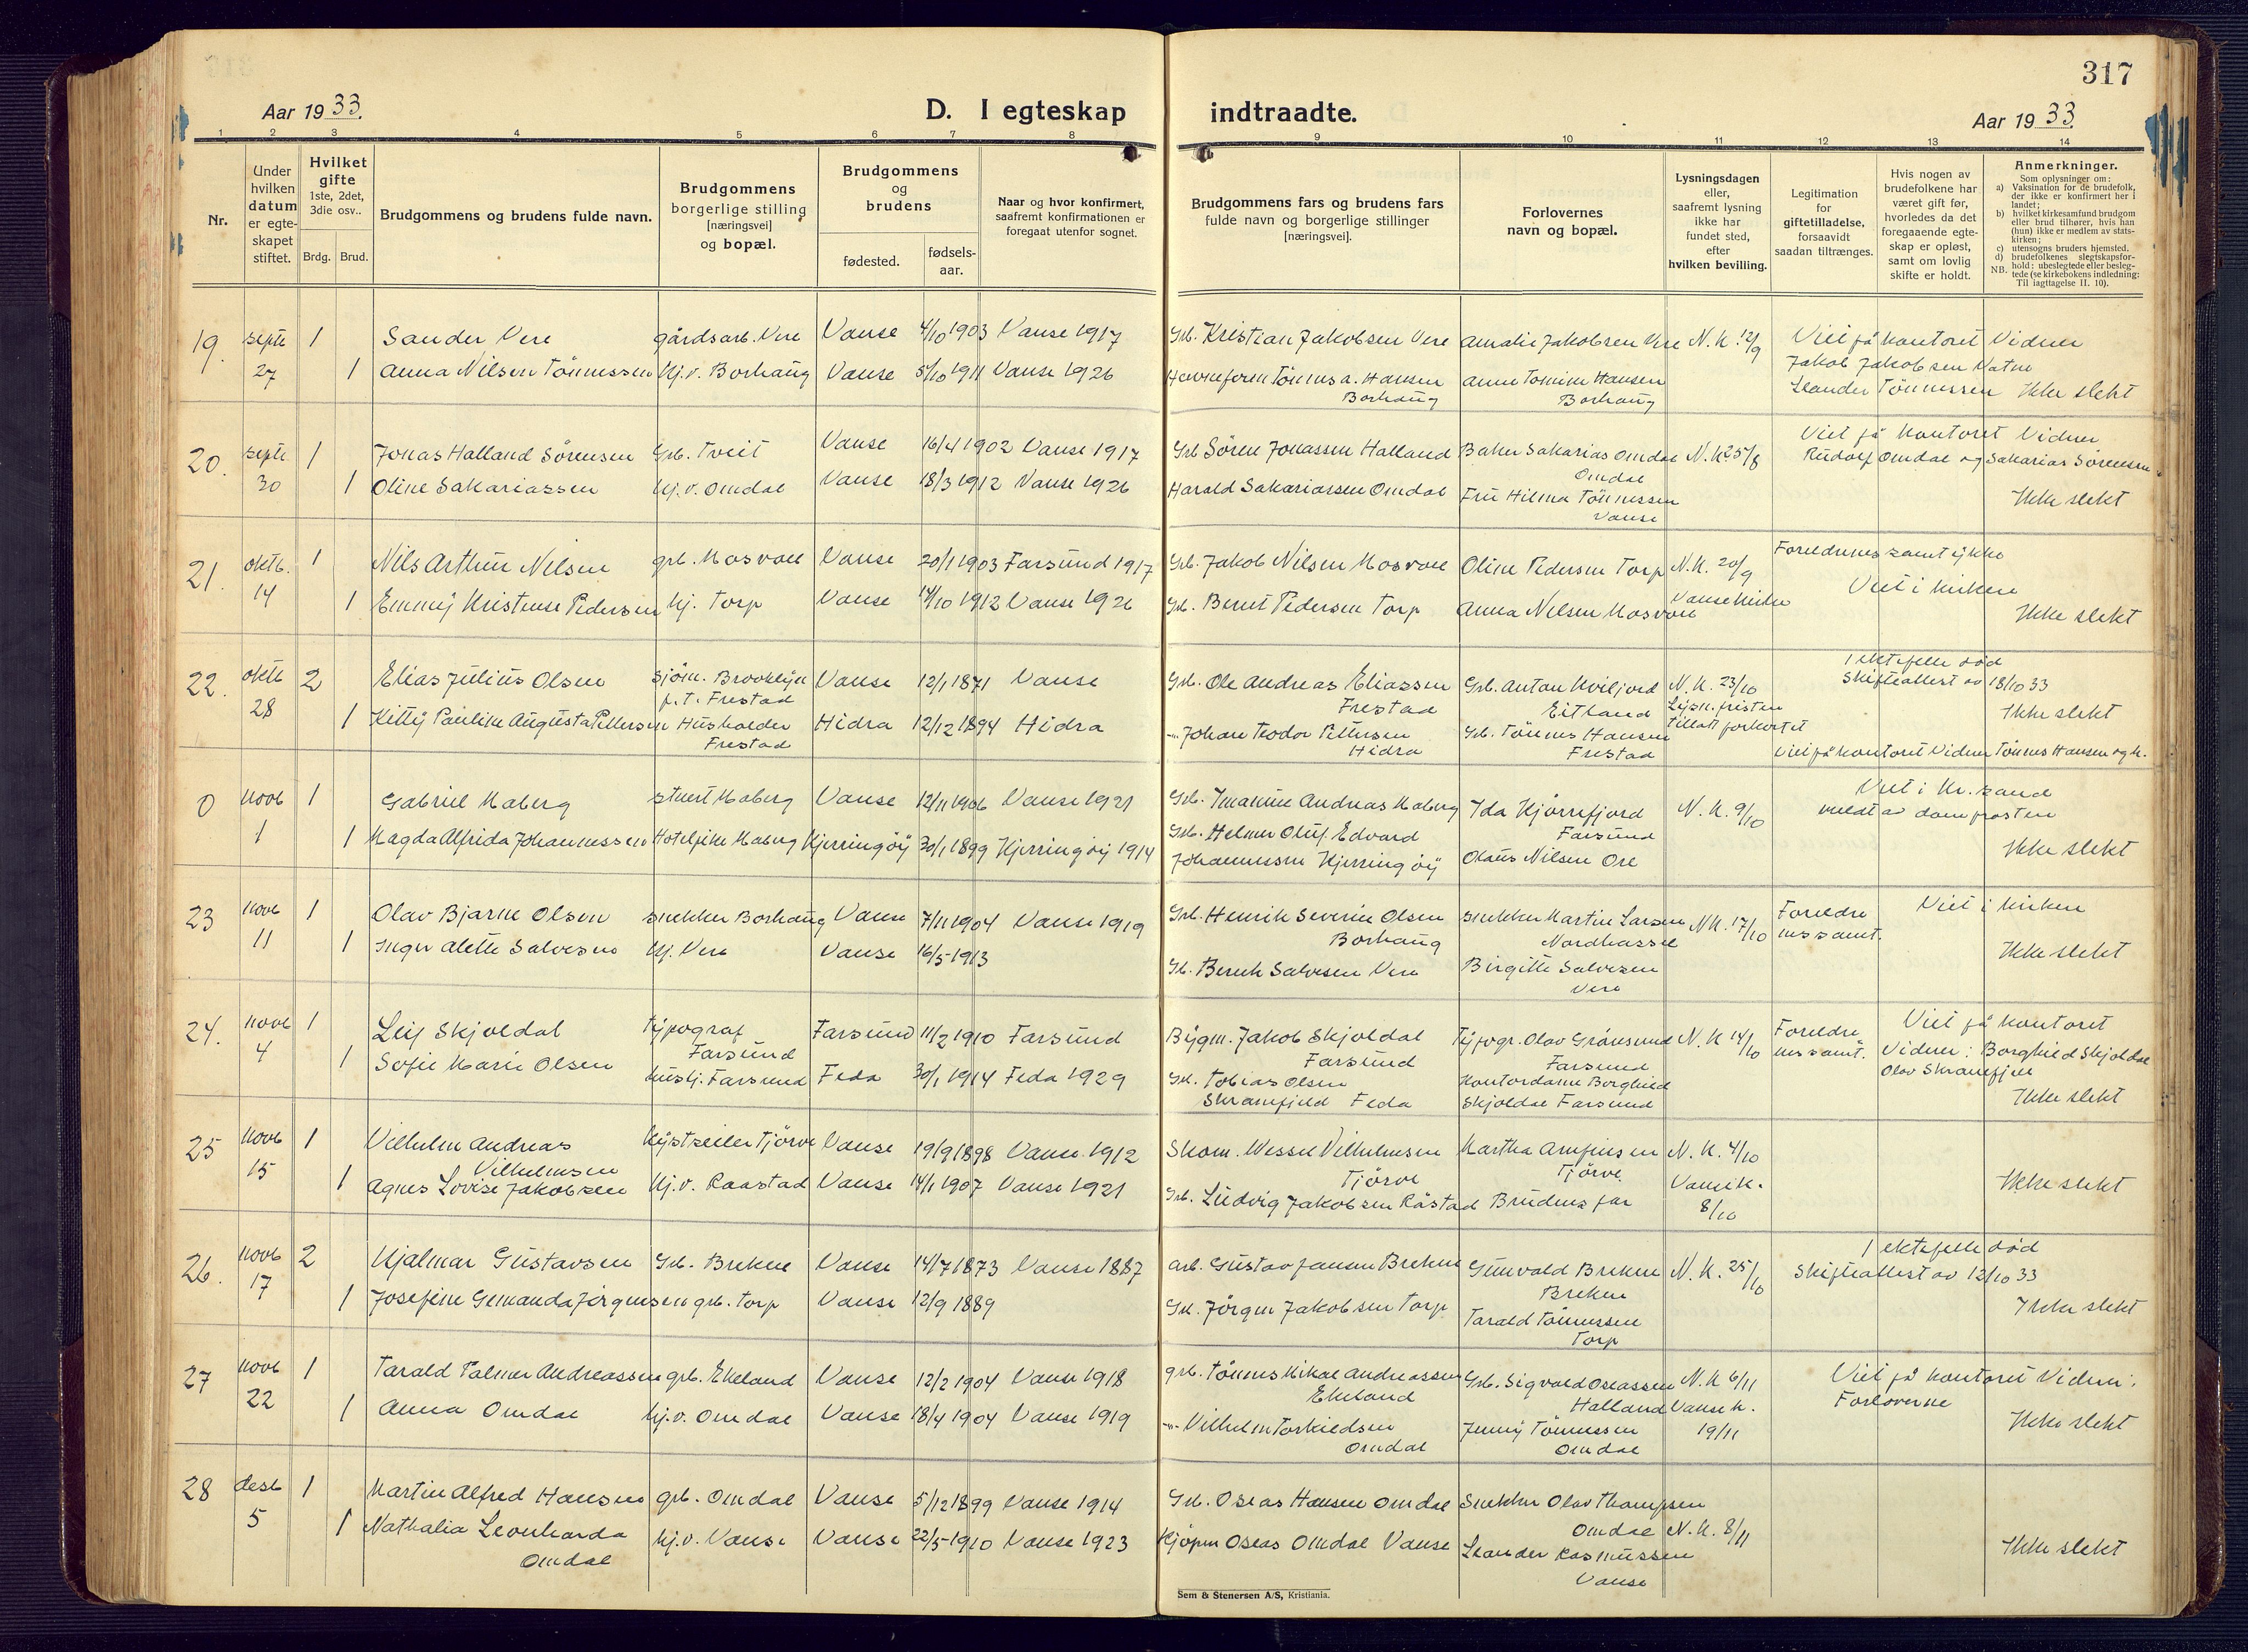 317
Aar 1933.
D. I egteskap indtraadte.
Aar 1933.
1 2 3 4 5 6 7 8 9 10 11 12 13 14
Nr.
Under
hvilken
datum
er egte-
skapet
stiftet.
Hvilket
gifte
1ste, 2det,
3die osv..
Brdg. Brud.
Brudgommens og brudens fulde navn.
Brudgommens
borgerlige stilling
[næringsvei]
og bopæl.
Brudgommens
og
brudens
fødested.
fødsels-
aar.
Naar og hvor konfirmert,
saafremt konfirmationen er
foregaat utenfor sognet.
Brudgommens fars og brudens fars
fulde navn og borgerlige stillinger
[næringsvei].
Forlovernes
navn og bopæl.
Lysningsdagen
eller,
saafremt lysning
ikke har
fundet sted,
efter
hvilken bevilling.
Legitimation
for
giftetilladelse,
forsaavidt
saadan tiltrænges.
Hvis nogen av
brudefolkene har
været gift før,
hvorledes da det
foregaaende egte-
skap er opløst,
samt om lovlig
skifte er holdt.
Anmerkninger.
Som oplysninger om:
a) Vaksination for de brudefolk,
der ikke er konfirmert her i
landet;
b) hvilket kirkesamfund brudgom
eller brud tilhører, hvis han
(hun) ikke er medlem av stats-
kirken;
c) utensogns bruders hjemsted.
d) brudefolkenes slegtskapsfor-
hold: ubeslegtede eller besleg-
NB. tede (se kirkebokens indledning:
Til iagttagelse II. 10).
19. septe 1 Sander Vere gårdsarb. Vere Vanse 4/10 1903 Vanse 1917 Grb. Kristian Jakobsen Vere Amalie Jakobsen Vere N.K. 12/9 Viet på kontoret Vidner
27 1 Anna Nilsen Tönnessen hj.v. Borhaug Vanse 5/10 1911 Vanse 1926 Tönnes A. Hansen Anne Tomine Hansen Jakob Jakobsen Vatne
Borhaug Borhaug Leander Tönnessen Ikke slekt
20. septe. 1 Jonas Halland Sörensen Grb. Tveit Vanse 16/4 1902 Vanse 1917 Grb Sören Jonassen Halland Baker Sakarias Omdal N.K. 25/8 Viet på kontoret Vidner
Omdal Rudolf Omdal og Sakarias Sörensen
30 1 Oline Sakariassen hj.v. Omdal Vanse 18/3 1912 Vanse 1926 Harald Sakariassen Omdal Fru Hilma Tönnessen Ikke slekt
Vanse
21. oktb. 1 Nils Arthur Nilsen grb. Mosvoll Vanse 20/1 1903 Farsund 1917 Grb. Jakob Nilsen Mosvoll Oline Pedersen Torp N.K. 20/9 Foreldrenes samtykke
Viet i kirken
14 1 Emmy Kristense Pedersen hj. Torp Vanse 14/10 1912 Vanse 1926 Grb. Bernt Pedersen Torp Anna Nilsen Mosvoll Vanse kirke
Ikke slekt
22. oktb 2 Elias Julius Olsen sjöm. Brooklyn Vanse 12/1 1871 Vanse Grb. Ole Andreas Eliassen Grb. Anton Kviljord N.K. 23/10 1 ektefelle död
p.t. Frestad Frestad Eitland Lysn. fristen Skifteattest av 18/10 33
28 1 Kitty Pauline Augusta Pettersen Husholder Hidra 12/12 1894 Hidra -"- Johan Teodor Pettersen Grb. Tönnes Hansen tillatt forkortet Ikke slekt
Frestad Hidra Frestad Viet på kontoret Vidner Tönnes Hansen og h.
0 novb 1 Gabriel Maberg stuert Maberg Vanse 12/11 1906 Vanse 1921 Grb. Imanuel Andreas Maberg Ida Kjörrefjord N.K. 9/10 Viet i Kr.sand
Farsund meldt av domprosten
1 1 Magda Alfrida Johannessen Hotelpike Maberg Kjerringöy 30/1 1899 Kjerringöy 1914 Grb. Helmer Oluf Edvard Olaus Nilsen Ore Ikke slekt
Johannessen Kjerringöy
23 novb 1 Olav Bjarne Olsen snekker Borhaug Vanse 7/11 1904 Vanse 1919 Grb. Henrik Severin Olsen snekker Martin Larsen N.K. 17/10 Foreldre Viet i kirken
Borhaug Nordhassel nes samt.
11 1 Inger Alette Salvesen hj. Vere Vanse 16/5 1913 Gb. Berent Salvesen Vere Birgitte Salvesen Ikke slekt
Vere
24. novb 1 Leif Skjoldal Typograf Farsund 11/2 1910 Farsund Bygm. Jakob Skjoldal Typogr. Olav Grönsund N.K 14/10 Foreldre Viet på kontoret
Farsund Farsund Farsund nes samt. Vidner: Borghild Skjoldal
4 1 Sofie Marie Olsen hushj. Farsund Feda 30/1 1914 Feda 1929 Gb. Tobias Olsen Kontordame Borghild Olav Skranefjell
Skranefjeld Feda Skjoldal Farsund Ikke slekt
25 novb 1 Vilhelm Andreas Kystseiler Tjörve Vanse 19/9 1898 Vanse 1912 Skom. Wessel Vilhelmsen Martha Arnfinsen N.K. 4/10
Vilhelmsen Tjörve Tjörve
15 1 Agnes Lovise Jakobsen hj.v. Raastad Vanse 14/1 1907 Vanse 1921 Grb. Ludvig Jakobsen Råstad Brudens far Vansek. 8/10 Ikke slekt
26. novb 2 Hjalmar Gustavsen Grb. Brekne Vanse 14/7 1873 Vanse 1887 arb. Gustav Jansen Brekne Gunvald Brekne N.K. 25/10 1 ektefelle död
Brekne Skifteattest av 12/10 33
17 1 Josefine Gemanda Jörgensen grb. Torp Vanse 12/9 1889 Gb. Jörgen Jakobsen Torp Tarald Tönnessen Ikke slekt
Torp
27 novb 1 Tarald Palmer Andreassen grb. Ekeland Vanse 12/2 1904 Vanse 1918 grb. Tönnes Mikal Andreassen Grb. Sigvald Oseassen N.K 6/11 Viet på kontoret Vidner:
Ekeland Halland Vanse k. Forloverne
22 1 Anna Omdal hj.v. Omdal Vanse 18/4 1904 Vanse 1919 -"- Vilhelm Torkildsen Jenny Tönnessen 19/11 Ikke slekt
Omdal Omdal
28 desb 1 Martin Alfred Hansen grb. Omdal Vanse 5/12 1899 Vanse 1914 Grb. Oseas Hansen Omdal Snekker Olav Thompsen
Omdal N.K. 8/11
5 1 Nathalia Leonharda hj.v. Vanse Vanse 22/5 1910 Vanse 1923 Kjöpm Oseas Omdal Vanse Leander Rasmussen Ikke slekt
Omdal Vanse
Sem & Stenersen A/S, Kristiania.